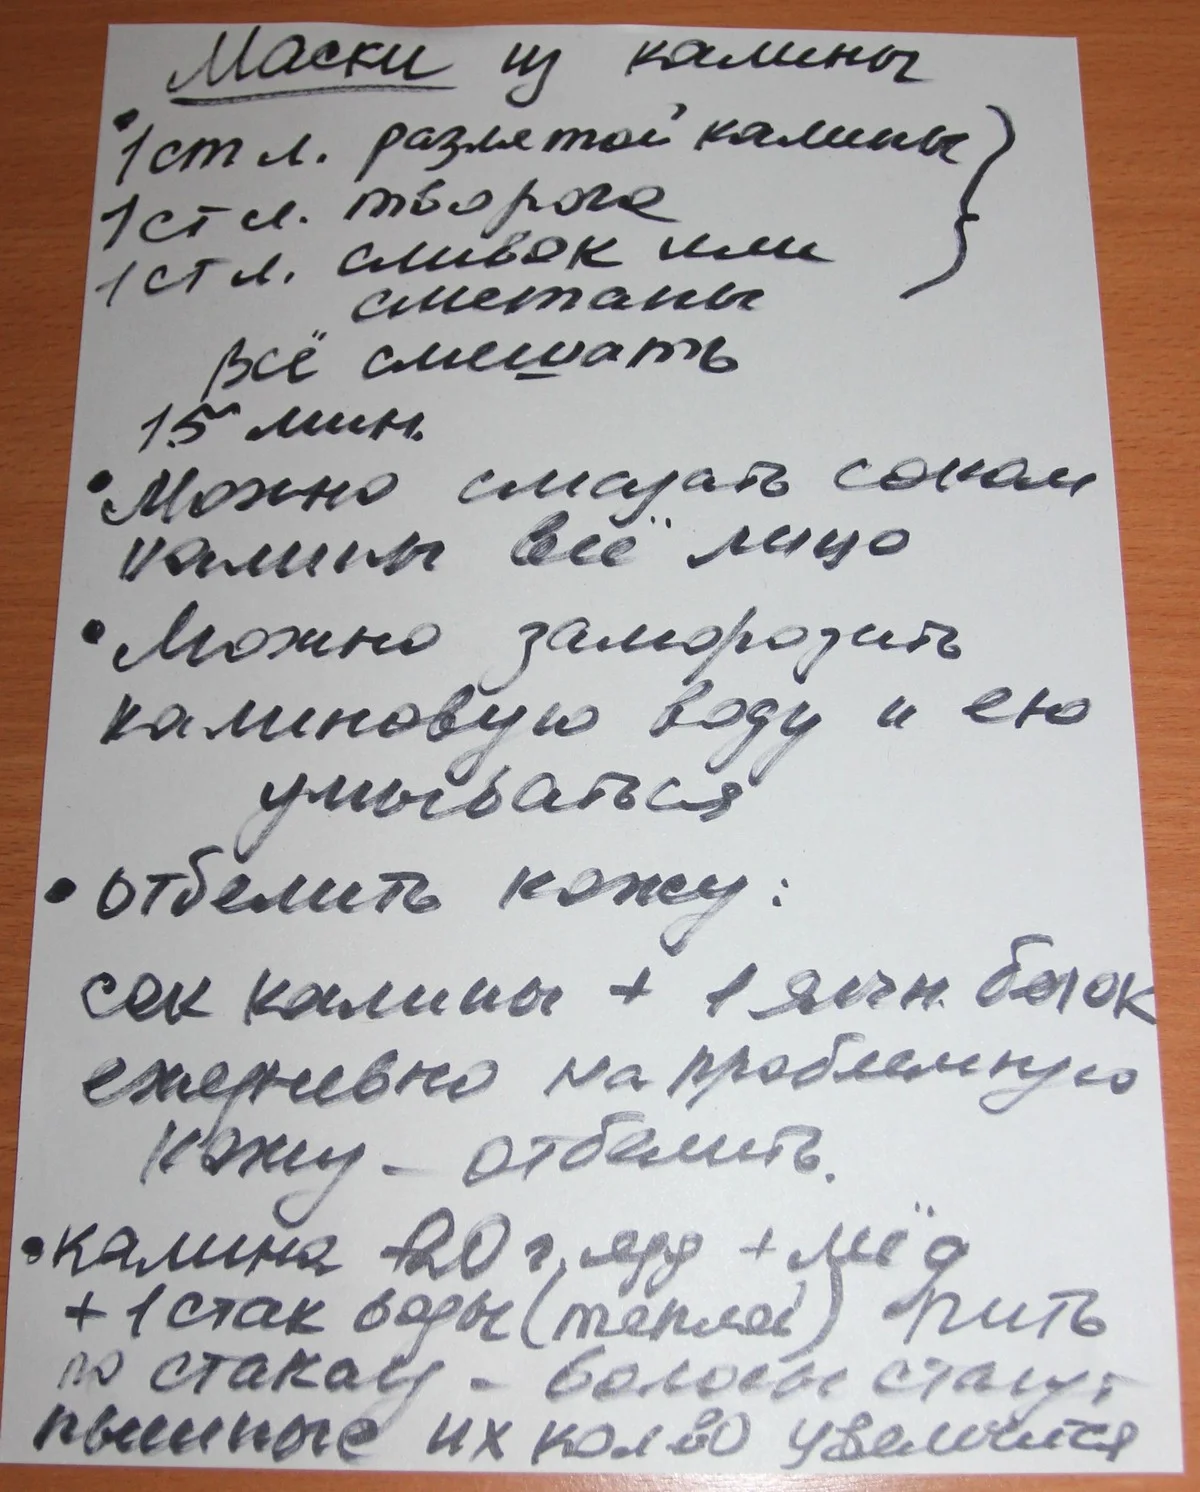 Маски из калины
• 1 ст л. размятой калины
1 ст л. творога
1 ст л. сливок или
сметаны
всё смешать
15 мин.
• Можно смазать соком
калины всё лицо
• Можно заморозить
калиновую воду и ею
умываться
• отбелить кожу:
сок калины + 1 яичн. белок
ежедневно на проблемную
кожу - отбелить.
• калина 20 г. + мёд
+ 1 стак воды (теплой) Пить
по стакану - волосы станут
пышные их кол во увеличится